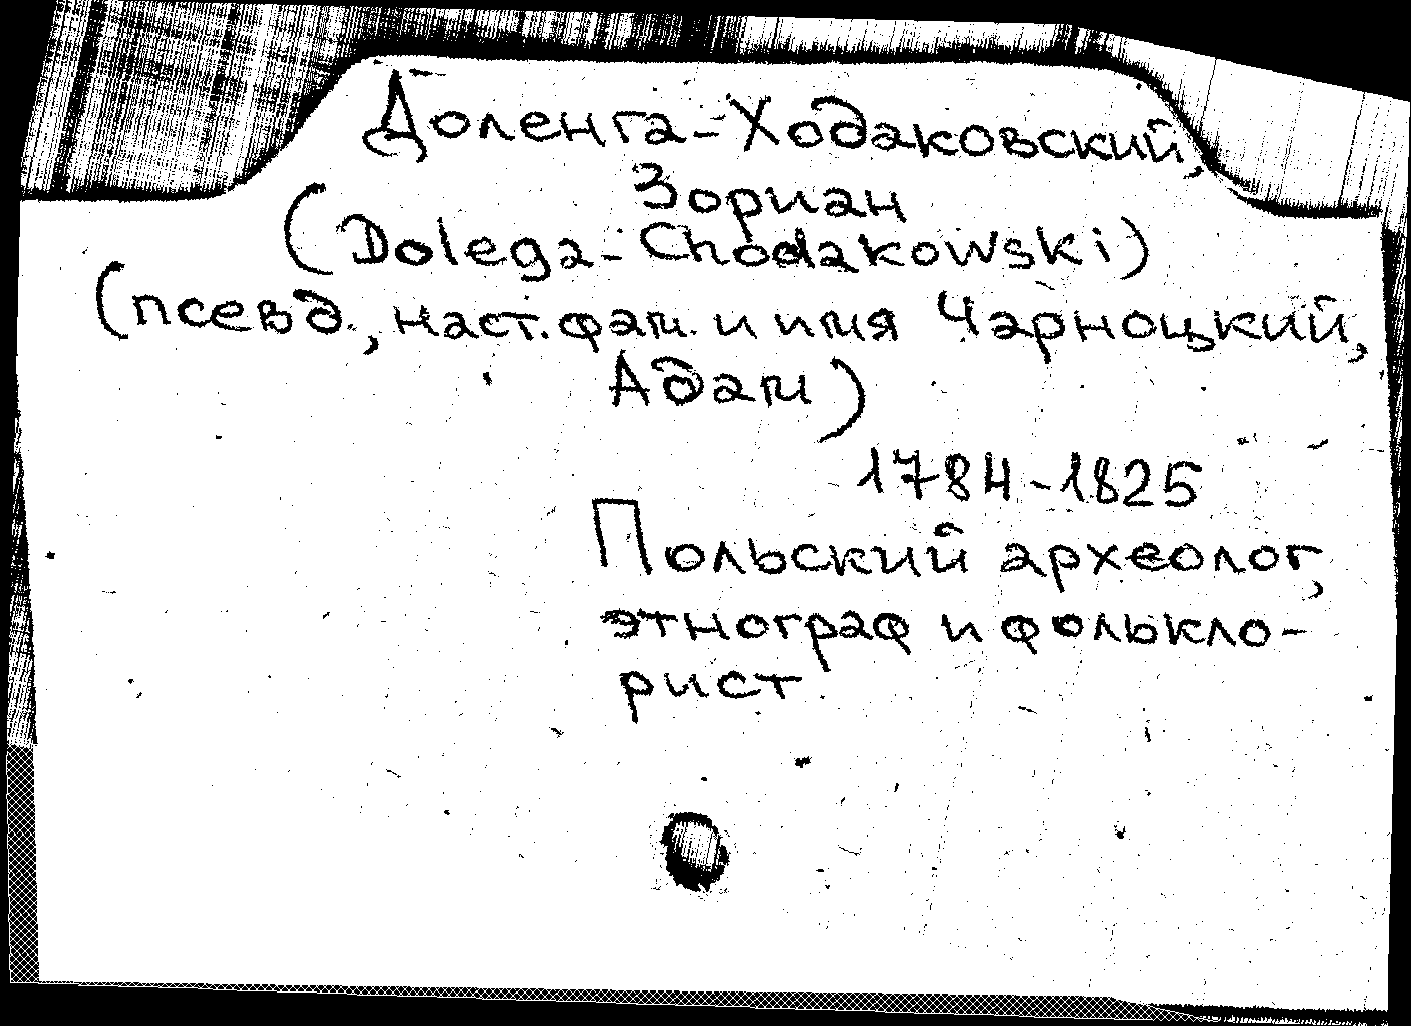 Доленга-Ходаковский,
Зориан
(Dolega-Chodakowski)
(псевд., наст. фам. и имя Чарноцкий,
Адам)
1784-1825
Польский археолог,
этнограф и фолькло-
рист.